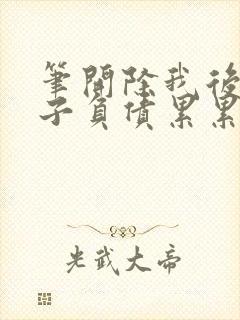 筆開除我後
子負債累累
光武大帝